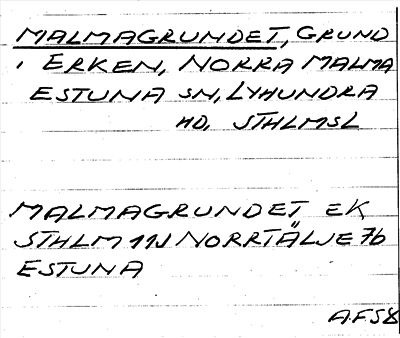 MALMAGRUNDET, GRUND
I ERKEN, NORRA MALMA
ESTUNA SN, LYHUNDRA
HD, STHLMSL
MALMAGRUNDET EK
STHLM 11J NORRTÄLJE 7b
ESTUNA
A.F S8